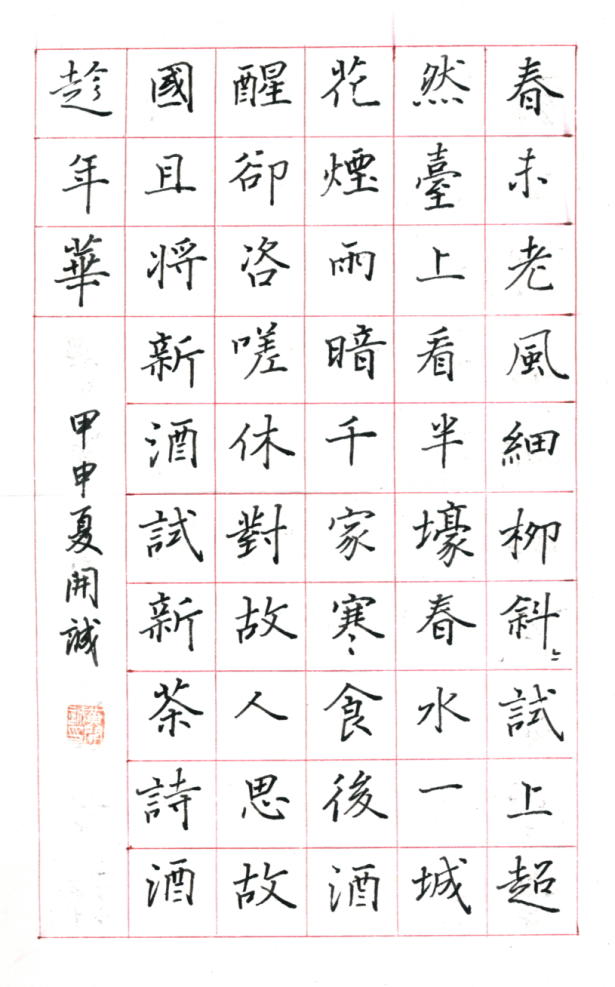 春未老風細柳斜〻試上超
然臺上看半壕春水一城
花煙雨暗千家寒食後酒
醒卻咨嗟休對故人思故
國且将新酒試新茶詩酒
趁年華
甲申夏開誠